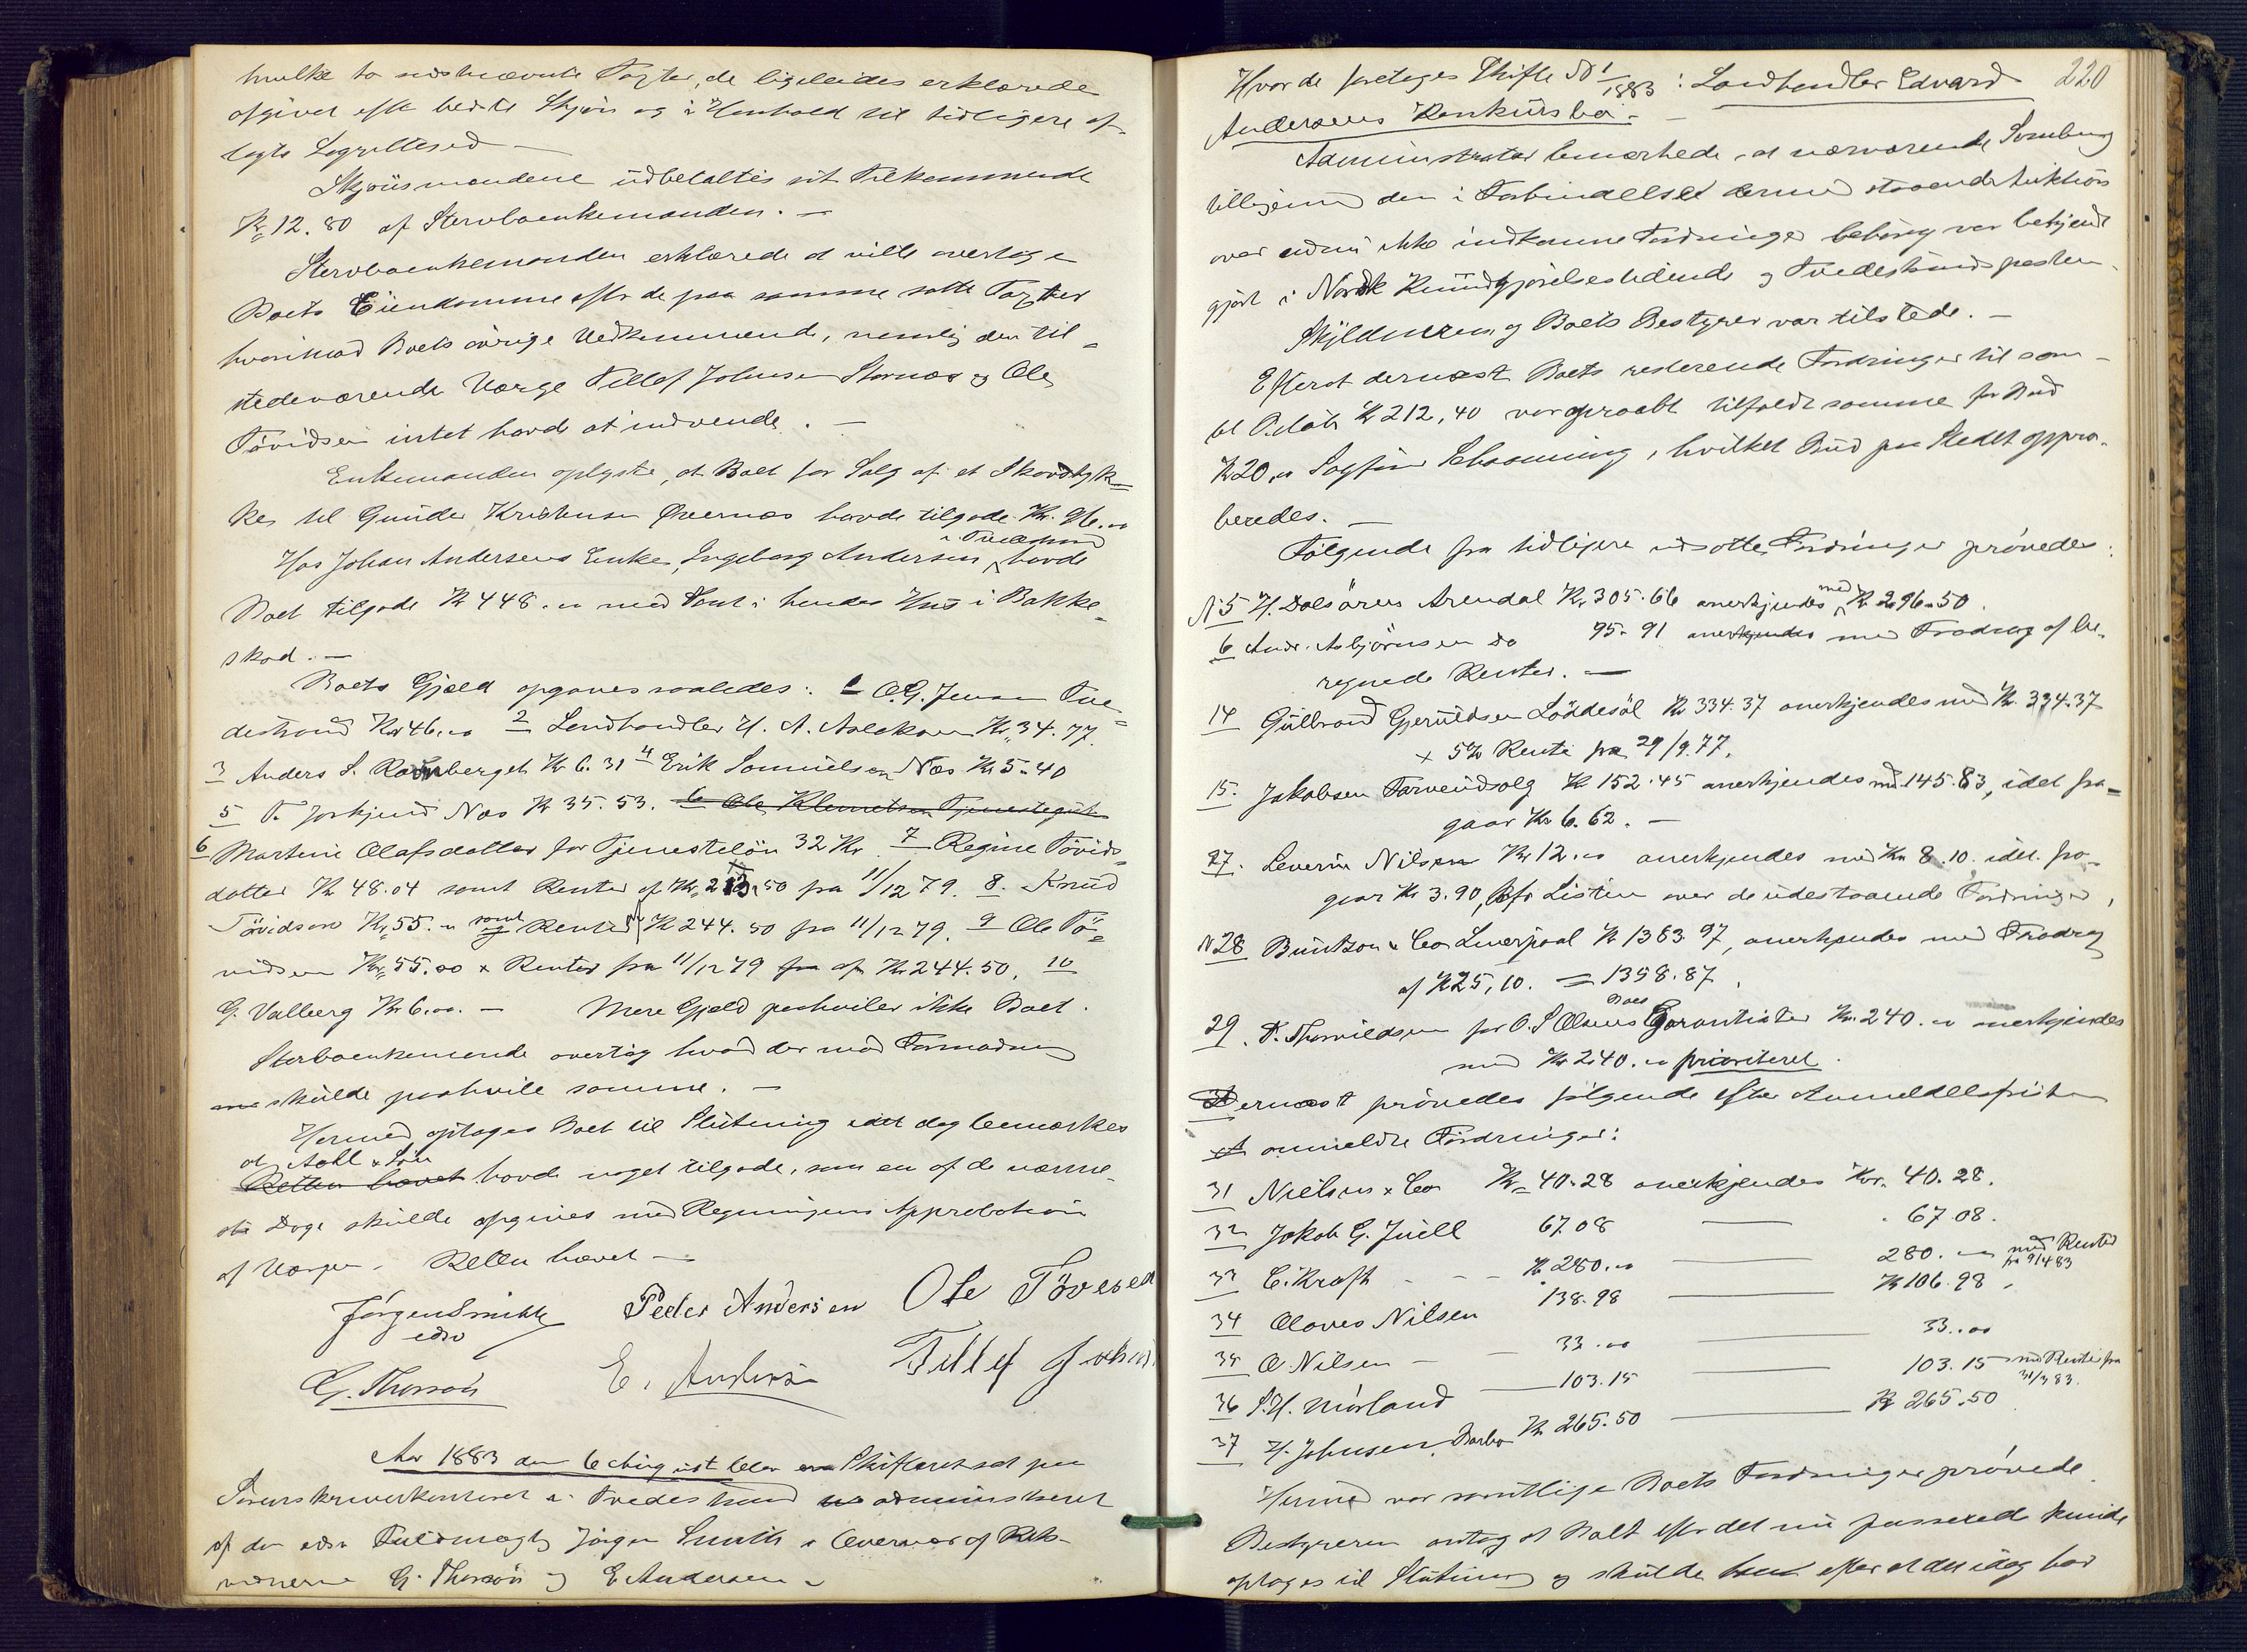 hvilke to sidstnævnte Taxter, de ligeledes erklærede
afgivet efter bedste Skjøn og i Henhold til tidligere af-
lagte Lagrettesed —
Skjønsmændene udbetaltes sit Tilkommende
Kr. 12.80 af Stervboenkemanden. —
Stervboenkemanden erklærede at ville overtage
Boets Eiendomme efter de paa samme satte Taxter
hvorimod Boets øvrige Vedkommende, nemlig den til-
stedeværende Værge Tellef Johnsen og Ole
Tøvidsen intet havde at indvende. —
Enkemanden oplyste, at Boet for Salg af et Skovstyk-
ke til Gunder Kristensen havde tilgode Kr. 96.00
Hos Johan Andersens Enke, Ingeborg Andersen i Tvedestrand havde
Boet tilgode Kr 448.00 med Pant i hendes Hus i Bakke-
skod. —
Boets Gjæld opgaves saaledes: 1 O.G. Jensen Tve-
destrand Kr 46.00 2 Landhandler H. A. Kr. 34.77.
3 Anders S. Kr 6.31 4 Erik Samuelsen Næs Kr 5.40
5 T. Næs Kr 35.53. 6 Ole Klemetsen Tjenestegut
6 Martine Olafsdatter for Tjenesteløn 32 Kr. 7 Regine Tøvids-
datter Kr 48.04 samt Renter af Kr. 213.50 fra 11/12 79. 8. Knud
Tøvidsen Kr. 55.00 samt Renter af Kr 244.50 fra 11/12 79. 9 Ole Tø-
vidsen Kr. 55.00 + Renter fra 11/12 79 fra af Kr. 244.50. 10
G. Valberg Kr 6.00. — Mere Gjæld paahviler ikke Boet.
Sterboenkemande overtog hvad der mod Formodning
skulde paahvile samme. —
Hermed optages Boet til Slutning idet dog bemærkes
at Aall & Søn
Retten hævet havde noget tilgode, som en af de nærme-
ste Dage skulde opgives med Regningens Approbation
af Værgen. Retten hævet —
Jørgen Smith Peder Andersen Ole Tøvesen
edsv
G. Thorson E. Andersen Tellef Johns
Aar 1883 den 6 August blev Skifteret sat paa
Sorenskriverkontoret i Tvedestrand administreret
af den edsv Fuldmægtig Jørgen Smith i Overvær af Rets-
vidnerne G. Thorson og E Andersen
220
Hvor da foretoges Skifte No 1/1883: Landhandler Edvard
Andersens Konkursbo. —
Administrator bemærkede, at nærværende Samling
tilligemed den i Forbindelse dermed staaende Auktion
over endnu ikke indkomne Fordringer behørig var bekjendt-
gjort i Norsk Kundgjørelsestidende og Tvedestrandsposten.
Skyldneren og Boets Bestyrer var tilstede. —
Efterat dernæst Boets resterende Fordringer til sam-
let Beløb Kr 212,40 var opraabt tilfaldt samme for Bud
Kr 20.00 Sagfører Schønning, hvilket Bud paa Stedet appro-
beredes. —
Følgende fra tidligere udsatte Fordringer prøvedes:
No 5 H. Arendal Kr. 305.66 anerkjendes med Kr 296.50.
6 Andr. Asbjørnsen do 95.91 anerkjendes med Fradrag af be-
regnede Renter. —
14 Gulbrand Gjeruldsen Kr 334.37 anerkjendes med Kr. 334.37
+ 5% Rente fra 29/9 77.
15. Jakobsen Kr 152.45 anerkjendes med 145.83, idet fra-
gaar Kr 6.62. —
27. Severin Nilsen Kr 12.00 anerkjendes med Kr 8.10 idet fra-
gaar Kr 3.90, Listen over de udestaaende Fordringer,
No 28 & Co Liverpool Kr 1363.97, anerkjendes med Fradrag
af Kr 25,10. = 1358.87.
29. T. Thorvildsen for O. S Olsens Boes Garantister Kr. 240.00 anerkjendes
med Kr 240.00 prioriteret.
Dernæst prøvedes følgende efter Anmeldelsesfristen
anmeldte Fordringer:
31 Nielsen & Co Kr. 40.28 anerkjendes Kr. 40.28.
32 Jakob G. Juell 67.08 — 67.08.
33 C. Kraft - - - Kr 280.00 — 280.— med Renter fra 9/4 83
34 Olaves Nilsen 138.98 — Kr 106.98.
35 O. Nilsen — — 33.00 — 33.00
36 S.H. Mørland — 103.15 — 103.15 med Renter fra 31/3 83.
37 H. Johnsen, Kr 265.50 — Kr 265.50
Hermed var samtlige Boets Fordringer prøvede.
Bestyreren antog at Boet efter det nu passerede kunde
optages til Slutning og skulde efter at der idag har